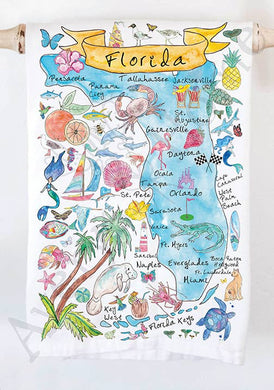 Florida
Pensacola
Tallahassee
Jacksonville
Panama
City
St.
Augustine
Gainesville
Daytona
Ocala
Tampa
Orlando
Cape
Canaveral
St. Pete
West
Palm
Beach
Sarasota
Venice
Ft. Myers
Sanibel
Naples
Everglades
Boca Raton
Hollywood
Ft. Lauderdale
Miami
Key
West
Florida Keys